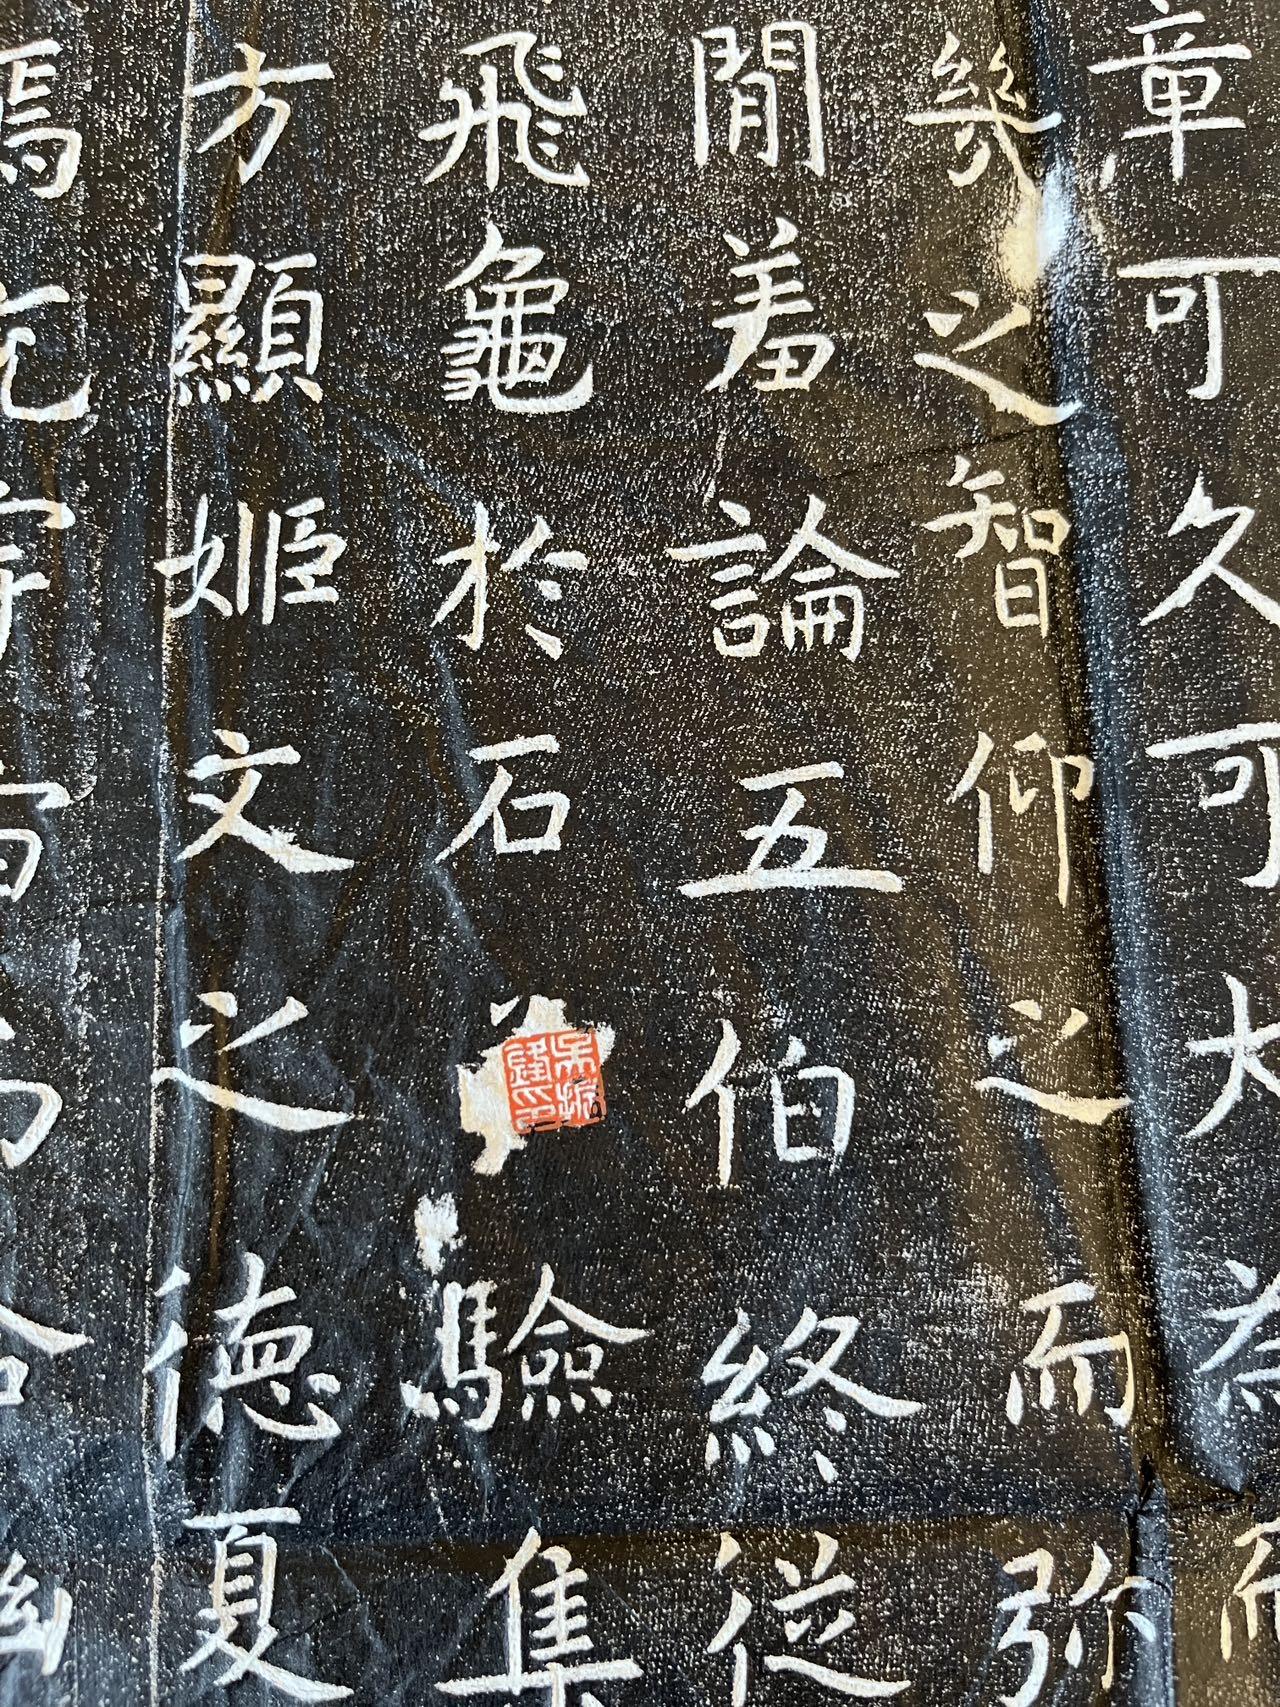 章可久可大為而
幾之智仰之而弥
閒羞論五伯終從
飛龜於石驗集
方顯姬文之德夏
焉